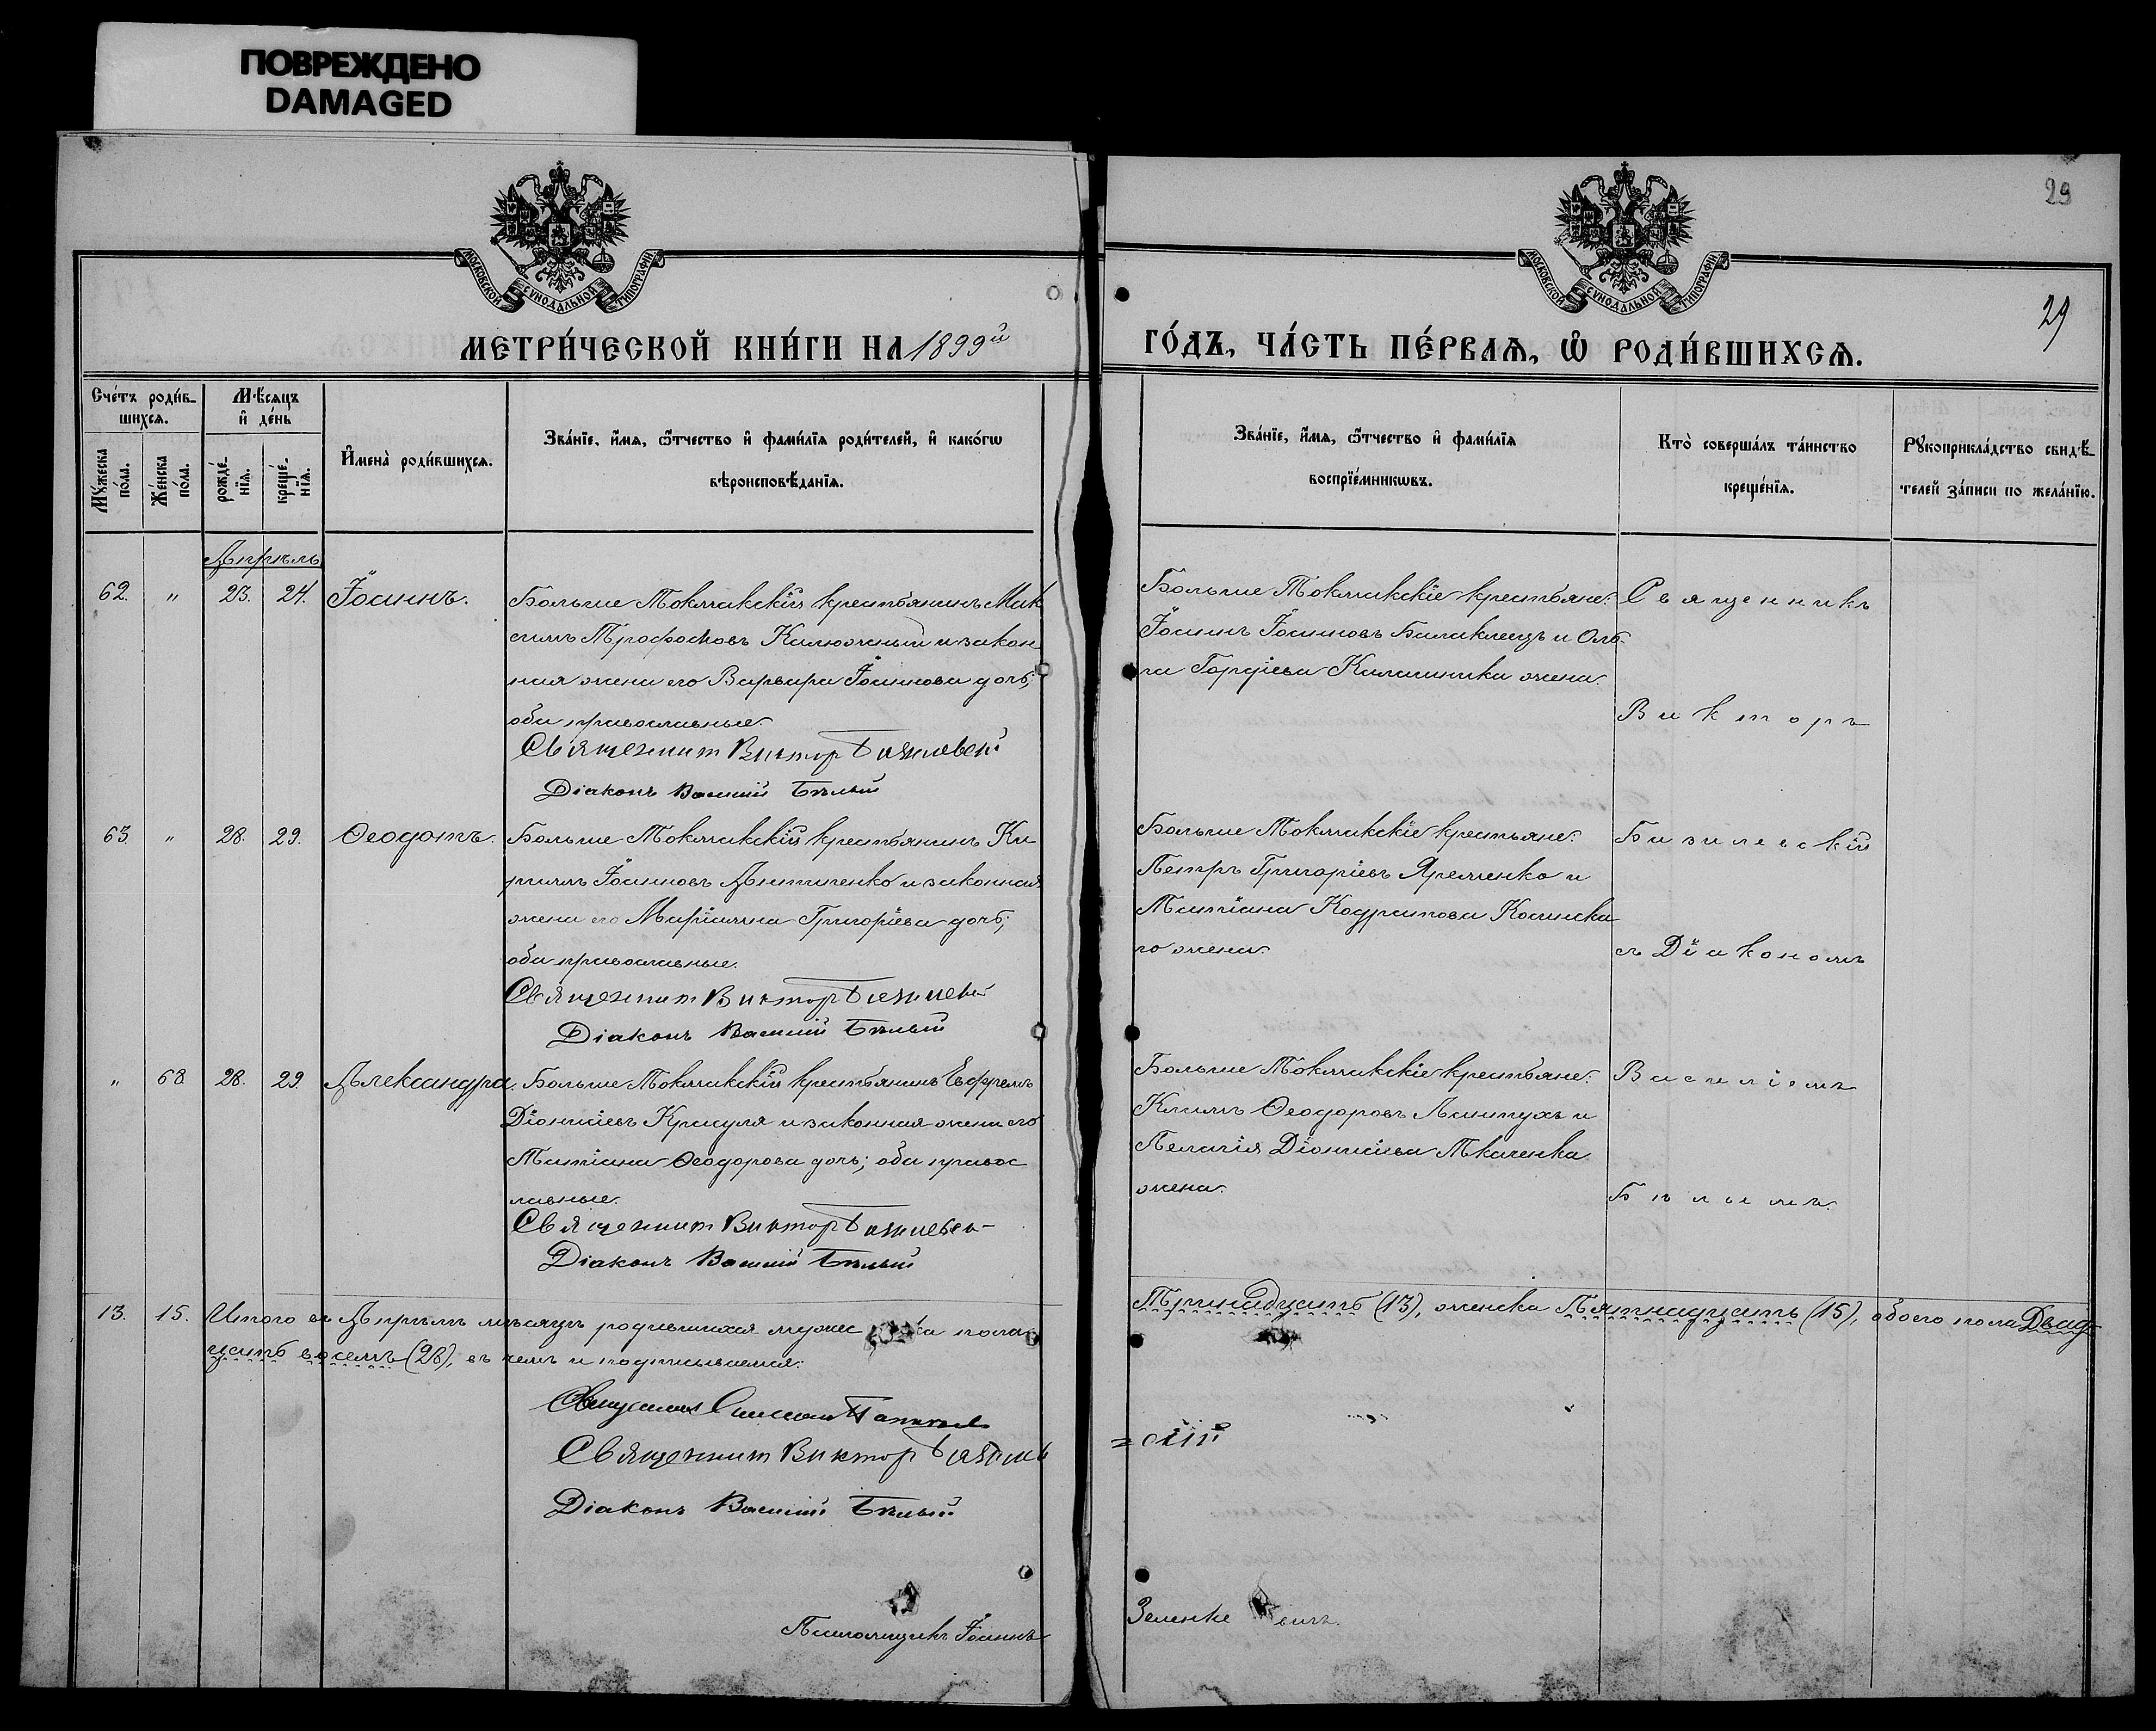 ПОВРЕЖДЕНО
DAMAGED
29
МОСКОВСКОЙ СУНОДАЛЬНОЙ ТИПОГРАФІИ
МОСКОВСКОЙ СУНОДАЛЬНОЙ ТИПОГРАФІИ
29
МЕТРИ́ЧЕСКОЙ КНИ́ГИ НА 1899й
ГО́ДЪ, ЧА́СТЬ ПЕ́РВАѦ, Ѡ҆ РОДИ́ВШИХСѦ.
Сче́тъ роди́в-
шихсѧ.
Мꙋ́жеска по́ла.
Же́нска по́ла.
Мѣ́сѧцъ
и҆ де́нь
рожде́-
нїѧ.
креще́-
нїѧ.
И҆мена̀ роди́вшихсѧ.
Зва́нїе, и҆́мѧ, ѻ҆́тчество и҆ фами́лїѧ роди́телей, и҆ како́гѡ
вѣроисповѣ́данїѧ.
Зва́нїе, и҆́мѧ, ѻ҆́тчество и҆ фами́лїѧ
воспрїе́мникѡвъ.
Кто̀ соверша́лъ та́инство
креще́нїѧ.
Рꙋкоприкла́дство свидѣ́-
телей за́писи по жела́нїю.
Апрѣль
62. " 23. 24. Іоаннъ.
Больше Токмакскій крестьянинъ Мак
симъ Трофимовъ Калюжный и закон
ная жена его Варвара Іоаннова дочь;
оба православные.
Священникъ Викторъ Базилевскій
Діаконъ Василій Бѣлый
Больше Токмакскіе крестьяне:
Іоаннъ Іоанновъ Балаклецъ и Оль-
га Гордіева Калашника жена.
63. " 28. 29. Ѳеодотъ.
Больше Токмакскій крестьянинъ Ки
риллъ Іоанновъ Антипенко и законная
жена его Маріамна Григоріева дочь;
оба православные.
Священникъ Викторъ Базилевскій
Діаконъ Василій Бѣлый
Больше Токмакскіе крестьяне:
Петръ Григоріевъ Яременко и
Татіана Кодратова Косинска
го жена.
" 68 28. 29. Александра.
Больше Токмакскій крестьянинъ Евфремъ
Діонисіевъ Красуля и законная жена его
Татіана Ѳеодорова дочь; оба правос
лавные.
Священникъ Викторъ Базилевскій
Діаконъ Василій Бѣлый
Больше Токмакскіе крестьяне:
Климъ Ѳеодоровъ Лантухъ и
Пелагія Діонисіева Ткаченка
жена.
Священникъ
Викторъ
Базилевскій
съ Діакономъ
Василіемъ
Бѣлымъ.
13. 15. Итого въ Апрѣлѣ мѣсяцѣ родившихся мужес ка пола
Тринадцать (13), женска Пятнадцать (15), обоего пола Двад-
цать восемь (28), въ чемъ и подписываемся:
Священникъ
Священникъ Викторъ Базилев
=скій
Діаконъ Василій Бѣлый
Псаломщикъ Іоаннъ
Зеленке вичъ.